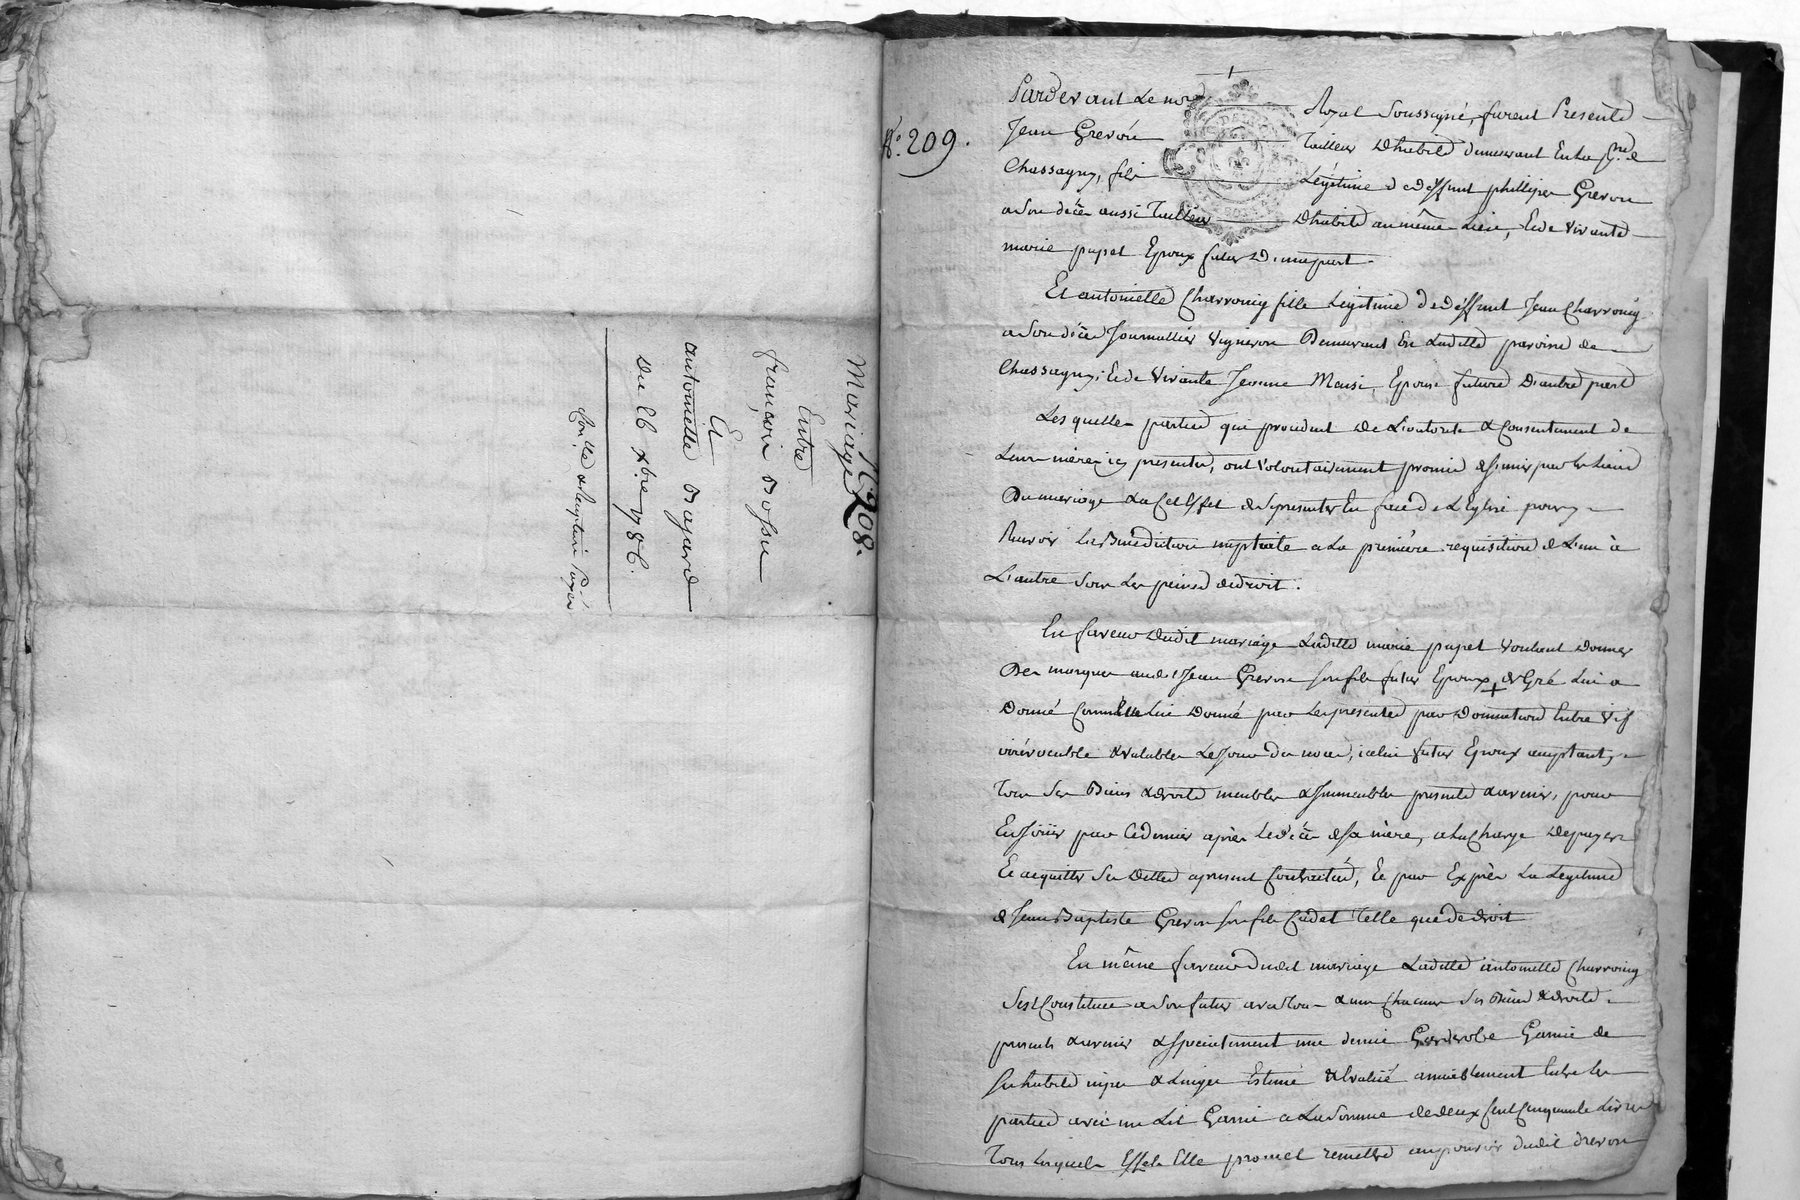 N.° 208.
Mariage
Entre
françois Bossu
Et
antoinette Bajard
Du 26 xbre 1786.
N.° 209.
Pardevant Le no.re Royal Soussigné, furent Presents
Jean Grevon Tailleur D'habits demeurant En la p.sse de
Chassagny, fils Légitime de deffunt phillipe Grevon
a Son décès aussi Tailleur D'habits au même Lieu, Et de vivante
marie papet Epoux futur D'une part.
Et antoinette Charvoing fille Légitime de deffunt Jean Charvoing
a Son décès Journallier vigneron Demeurant En Laditte paroisse de
Chassagny, Et de Vivante Jeanne Epouse future D'autre part
Lesquelles parties qui procedent de L'autorité & Consentement de
Leurs mères icy presentes, ont volontairement promis de s'unir par les Liens
Du mariage & a Cet Effet de se presenter En face de L'Eglise pour y
Recevoir La Bénédiction nuptiale a La premiere requisition de L'un à
L'autre Sous Les peines de droit.
En faveur Dudit mariage Laditte marie papet voulant Donner
Des marques aud. Jean Grevon Son fils futur Epoux de Gré Lui a
Donné Comme Elle Lui Donne par Les presentes par Donnation Entre vifs
irrévocable & valable Le Jour du nocé, icelui futur Epoux acceptant,
Tous Ses Biens & droits meubles & Immeubles presents & avenir, pour
En Joüir par Ce dernier après Le décès de Sa mère, a La Charge De payer
Et acquitter Ses Dettes a present Contractées, Et par Exprès La Legitime
de Jean Baptiste Grevon Son fils Cadet Telle que de droit
En même faveur Dudit mariage Laditte antoinette Charvoing
S'est Constituée a Son futur avec Tous & un Chacun Ses Biens & droits
presents & avenir & Specialement une demie Garderobe Garnie de
Ses habits nipes & Linges Estimé & Evalué amiablement Entre Les
parties avec un Lit Garni a La Somme de deux Cent Cinquante Livres
Tous Lesquels Effets Elle promet remettre au pouvoir dudit Grevon